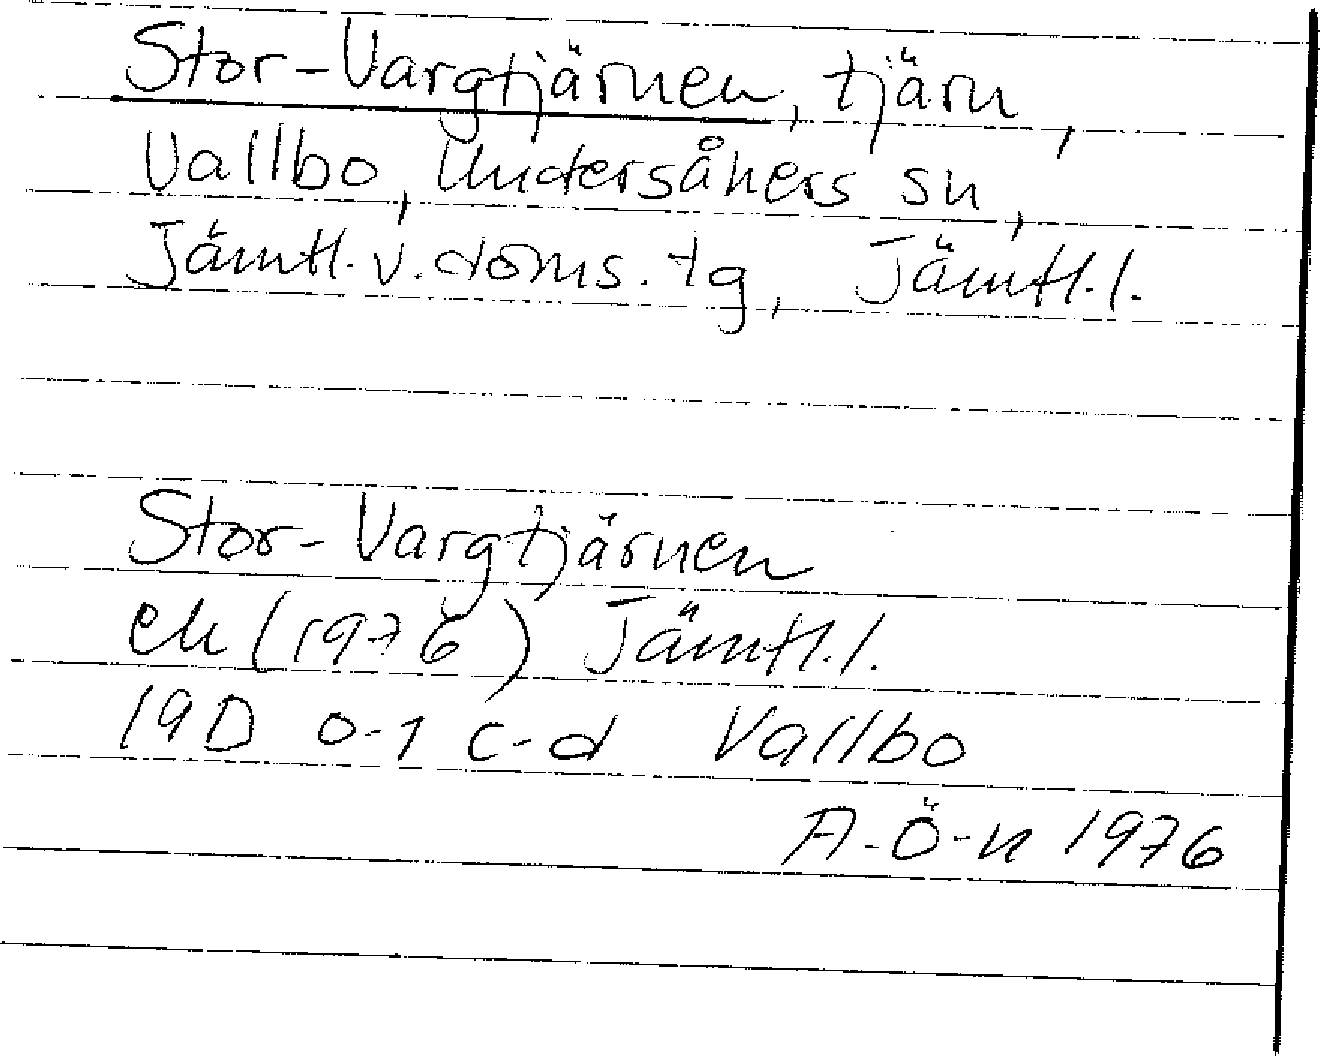 Stor-Vargtjärnen, tjärn,
Vallbo, Undersåkers sn,
Jämtl. v. doms. tg, Jämtl. l.
Stor-Vargtjärnen
ek (1976) Jämtl. l.
19D 0-1 c-d Vallbo
A-Ö-n 1976